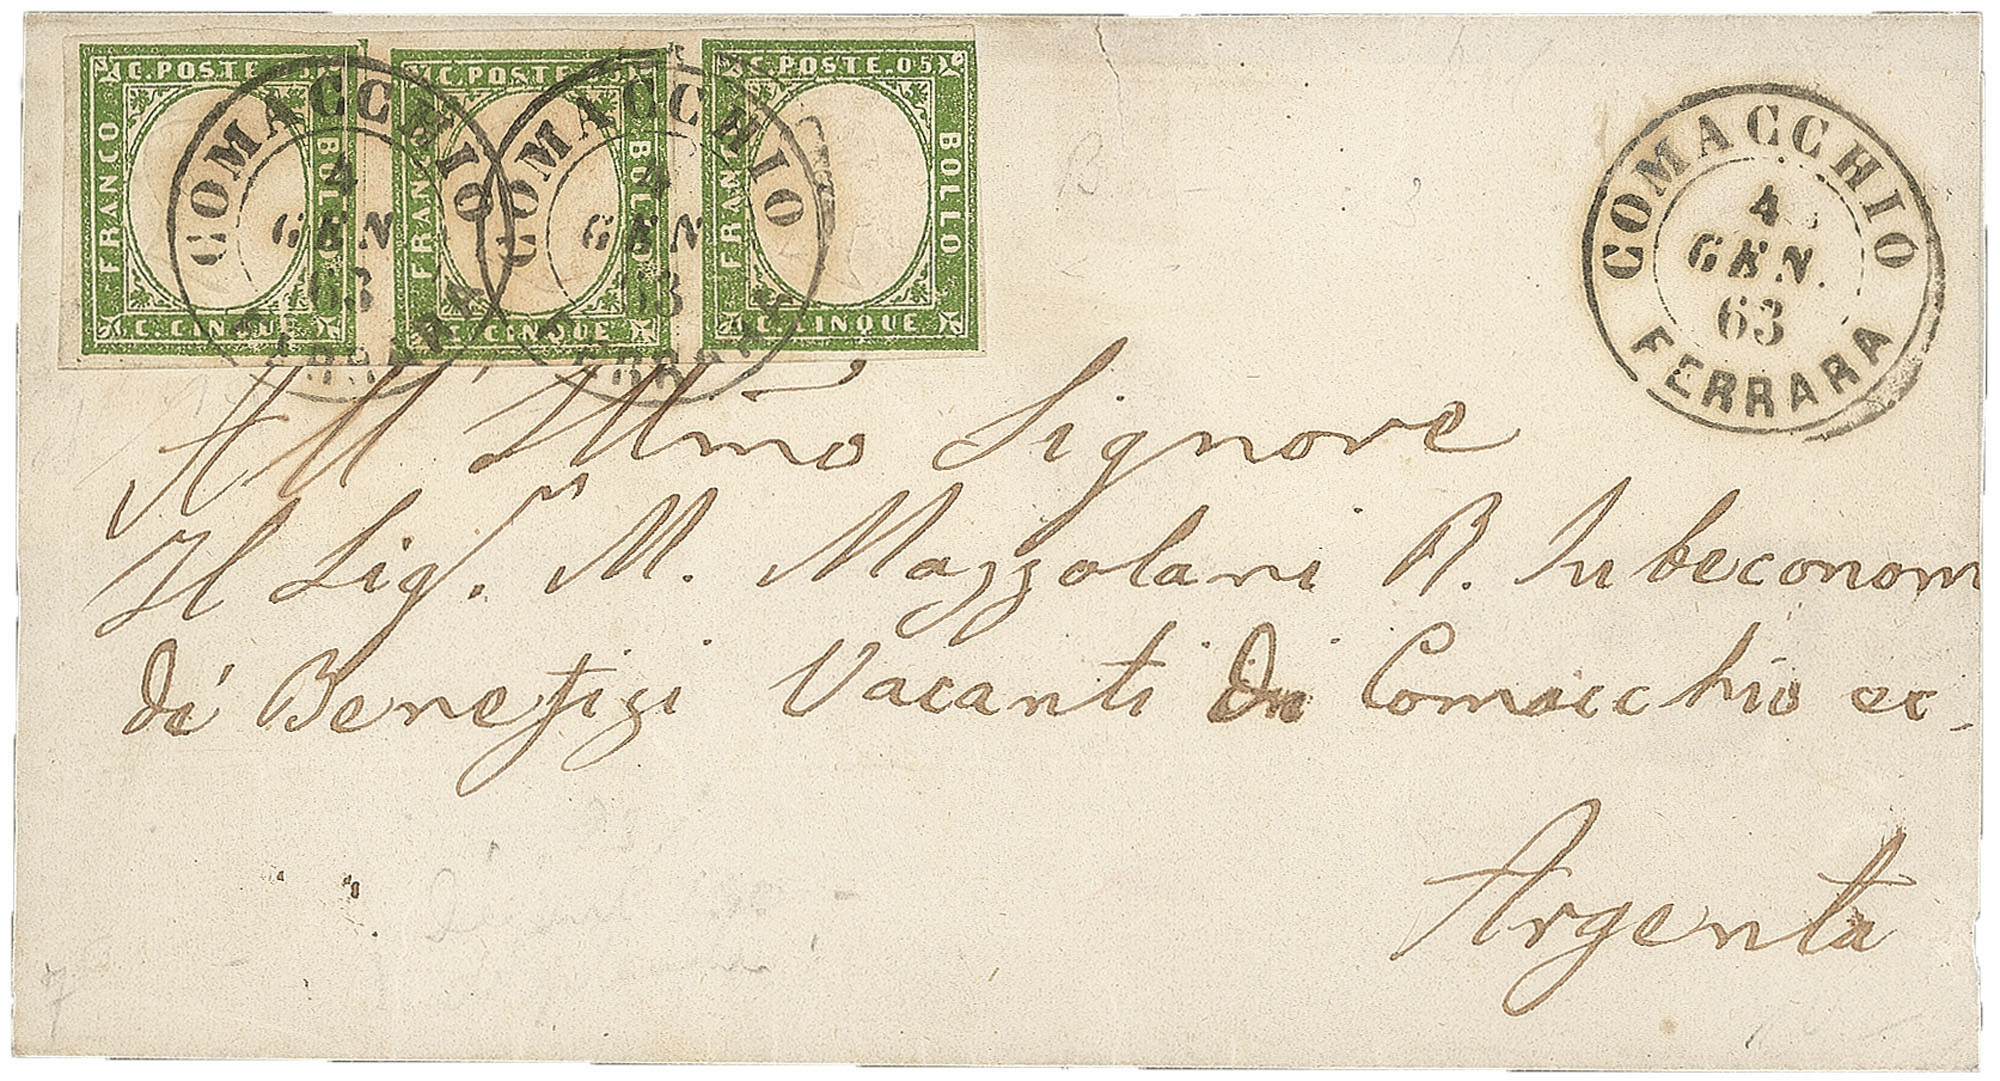 C. POSTE. 05
FRANCO
BOLLO
C. CINQUE
C. POSTE. 05
FRANCO
BOLLO
C. CINQUE
C. POSTE. 05
FRANCO
BOLLO
C. CINQUE
COMACCHIO
4
GEN
63
FERRARA
COMACCHIO
4
GEN
63
FERRARA
COMACCHIO
4
GEN.
63
FERRARA
All' Illmo Signore
Il Sigr. M. Mazzolani R. Subeconom
di Benefizi Vacanti Di Comacchio ec
Argenta